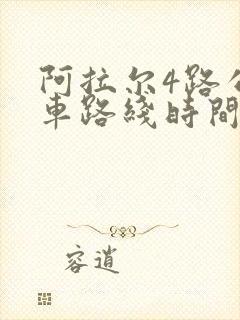 阿拉尔4路公
車路綫時間
容逍